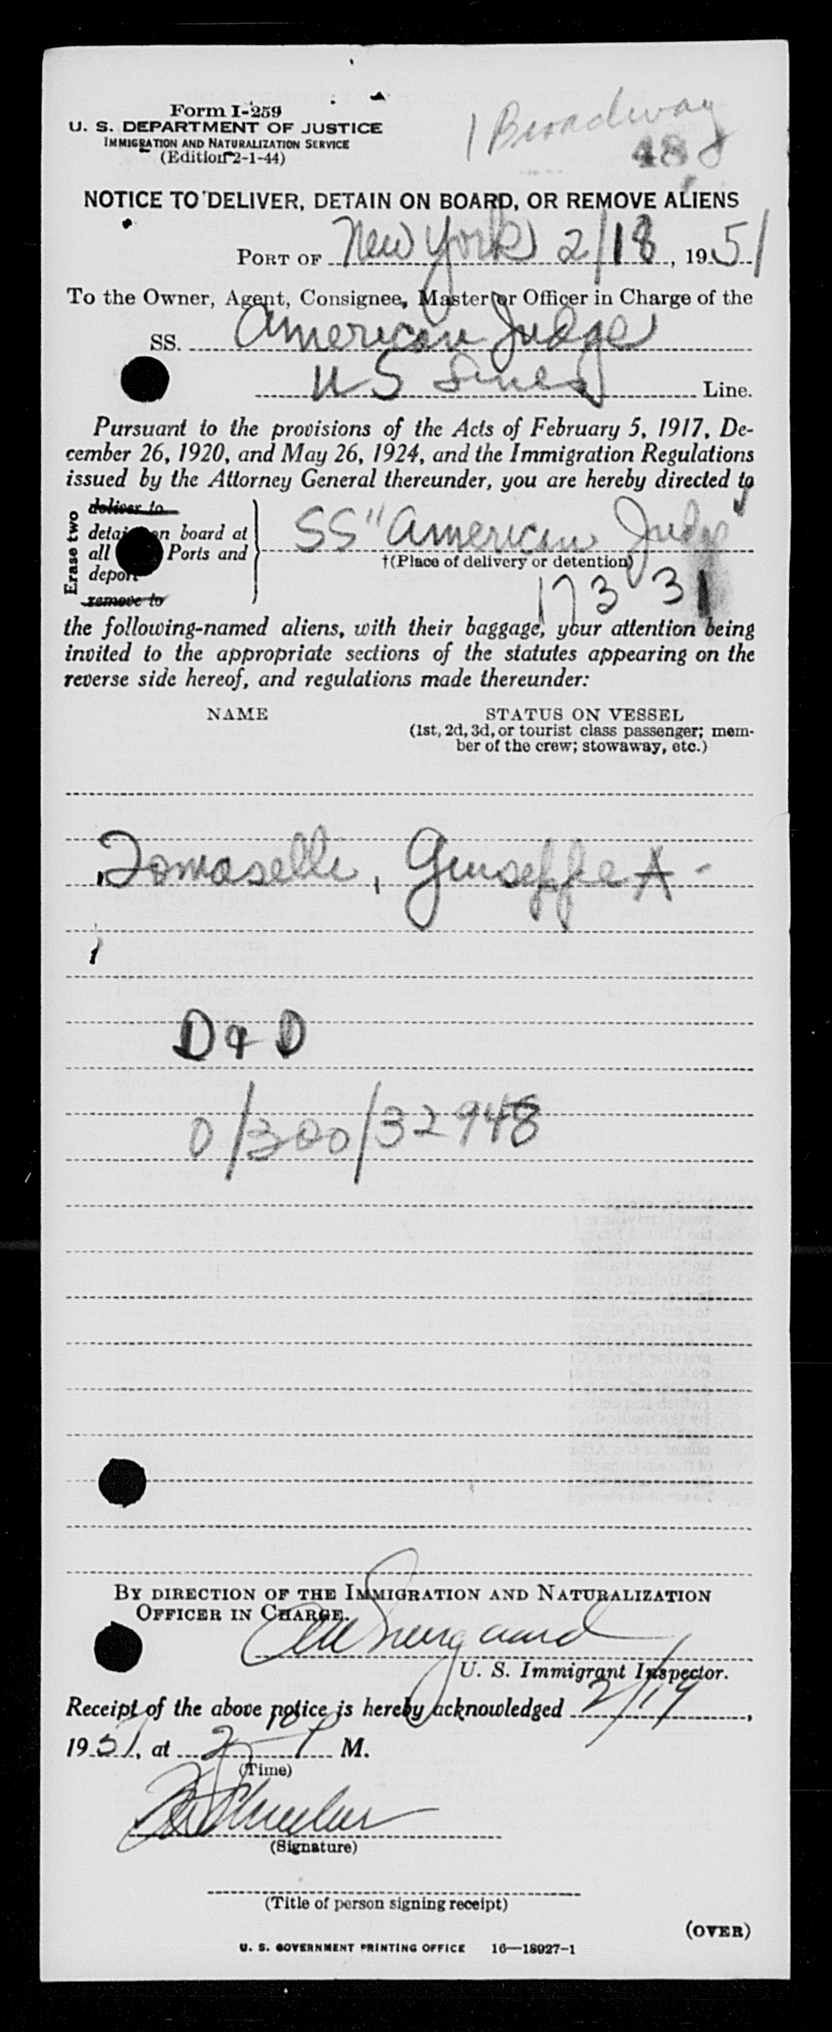 Form I-259
U. S. DEPARTMENT OF JUSTICE
IMMIGRATION AND NATURALIZATION SERVICE
(Edition 2-1-44)
1 Broadway
48
NOTICE TO DELIVER, DETAIN ON BOARD, OR REMOVE ALIENS
PORT OF New York 2/18, 1951
To the Owner, Agent, Consignee, Master or Officer in Charge of the
SS. American Judge
U S Lines Line.
Pursuant to the provisions of the Acts of February 5, 1917, De-
cember 26, 1920, and May 26, 1924, and the Immigration Regulations
issued by the Attorney General thereunder, you are hereby directed to
Erase two
deliver to
detain on board at
all Ports and
deport
remove to
SS "American Judge"
†(Place of delivery or detention)
173 31
the following-named aliens, with their baggage, your attention being
invited to the appropriate sections of the statutes appearing on the
reverse side hereof, and regulations made thereunder:
NAME STATUS ON VESSEL
(1st, 2d, 3d, or tourist class passenger; mem-
ber of the crew; stowaway, etc.)
Tomaselli, Giuseppe A-
D & D
0/300/32948
BY DIRECTION OF THE IMMIGRATION AND NATURALIZATION
OFFICER IN CHARGE.
U. S. Immigrant Inspector.
Receipt of the above notice is hereby acknowledged 2/19,
1951, at 2 P M.
(Time)
(Signature)
(Title of person signing receipt)
(OVER)
U. S. GOVERNMENT PRINTING OFFICE 16—18927-1